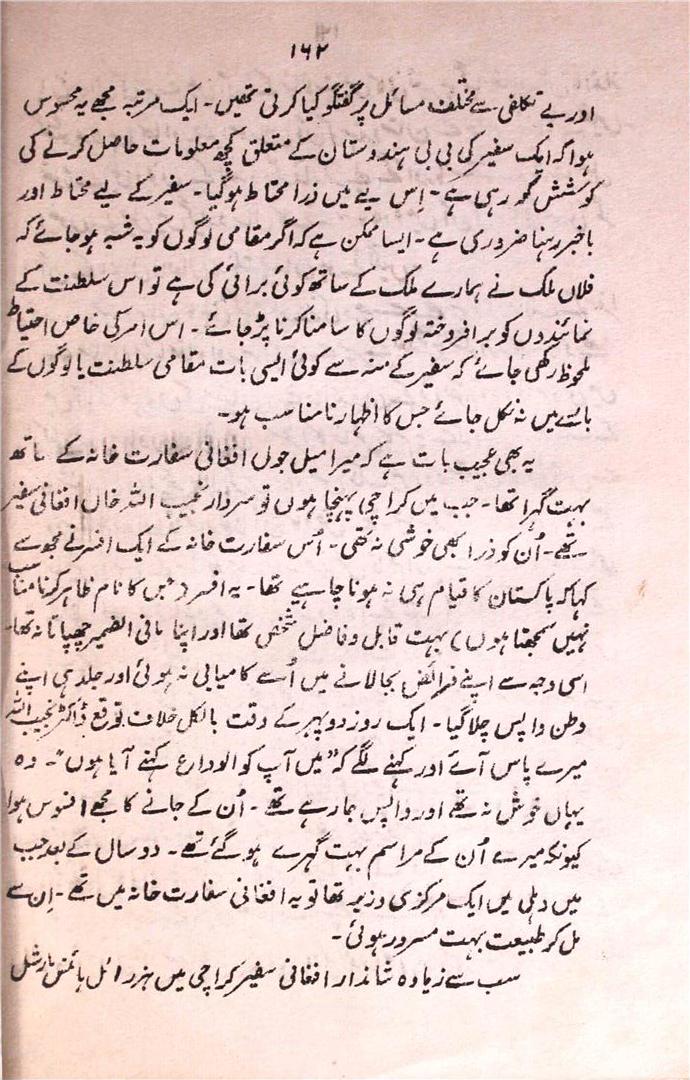 ۱۶۲
اور بے تکلفی سے مختلف مسائل پر گفتگو کیا کرتی تھیں۔ ایک مرتبہ مجھے یہ محسوس
ہوا کہ ایک سفیر کی بی بی ہندوستان کے متعلق کچھ معلومات حاصل کرنے کی
کوشش کر رہی ہے۔ اِس لیے میں ذرا محتاط ہوگیا۔ سفیر کے لیے محتاط اور
باخبر رہنا ضروری ہے۔ ایسا ممکن ہے کہ اگر مقامی لوگوں کو یہ شبہ ہو جائے کہ
فلاں ملک نے ہمارے ملک کے ساتھ کوئی برائی کی ہے تو اس سلطنت کے
نمائندوں کو برافروختہ لوگوں کا سامنا کرنا پڑ جائے۔ اس امر کی خاص احتیاط
ملحوظ رکھی جائے کہ سفیر کے منہ سے کوئی ایسی بات مقامی سلطنت یا لوگوں کے
بارے میں نہ نکل جائے جس کا اظہار نامناسب ہو۔
یہ بھی عجیب بات ہے کہ میرا میل جول افغانی سفارت خانہ کے ساتھ
بہت گہرا تھا۔ جب میں کراچی پہنچا ہوں تو سردار نجیب اللہ خاں افغانی سفیر
تھے۔ اُن کو ذرا بھی خوشی نہ تھی۔ اُس سفارت خانہ کے ایک افسر نے مجھ سے
کہا کہ پاکستان کا قیام ہی نہ ہونا چاہیے تھا۔ یہ افسر (جس کا نام ظاہر کرنا مناسب
نہیں سمجھتا ہوں) بہت قابل و فاضل شخص تھا اور اپنا مافی الضمیر چھپاتا نہ تھا۔
اسی وجہ سے اپنے فرائض بجا لانے میں اُسے کامیابی نہ ہوئی اور جلد ہی اپنے
وطن واپس چلا گیا۔ ایک روز دوپہر کے وقت بالکل خلاف توقع ڈاکٹر نجیب اللہ
میرے پاس آئے اور کہنے لگے کہ "میں آپ کو الوداع کہنے آیا ہوں"۔ وہ
یہاں خوش نہ تھے اور واپس جا رہے تھے۔ اُن کے جانے کا مجھے افسوس ہوا
کیونکہ میرے اُن کے مراسم بہت گہرے ہو گئے تھے۔ دو سال کے بعد جب
میں دہلی میں ایک مرکزی وزیر تھا تو یہ افغانی سفارت خانہ میں تھے۔ اِن سے
مل کر طبیعت بہت مسرور ہوئی۔
سب سے زیادہ شاندار افغانی سفیر کراچی میں ہز رائل ہائنس مارشل